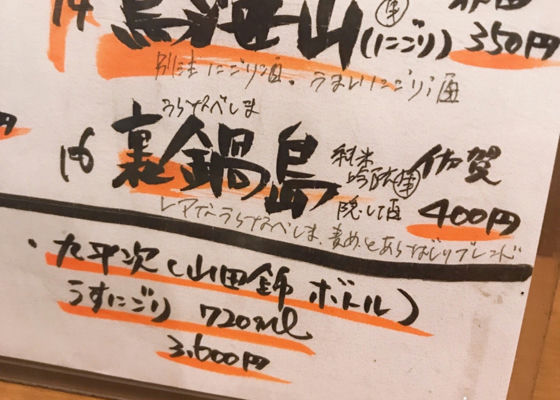 14 鳥海山 (にごり) 350円
別注にごり酒。うまいにごり酒
うらなべしま
16 裏鍋島 純米吟醸 隠し酒 佐賀 400円
レアなうらなべしま、責めとあらばしりブレンド
・九平次(山田錦ボトル)
うすにごり 720ml
3,600円